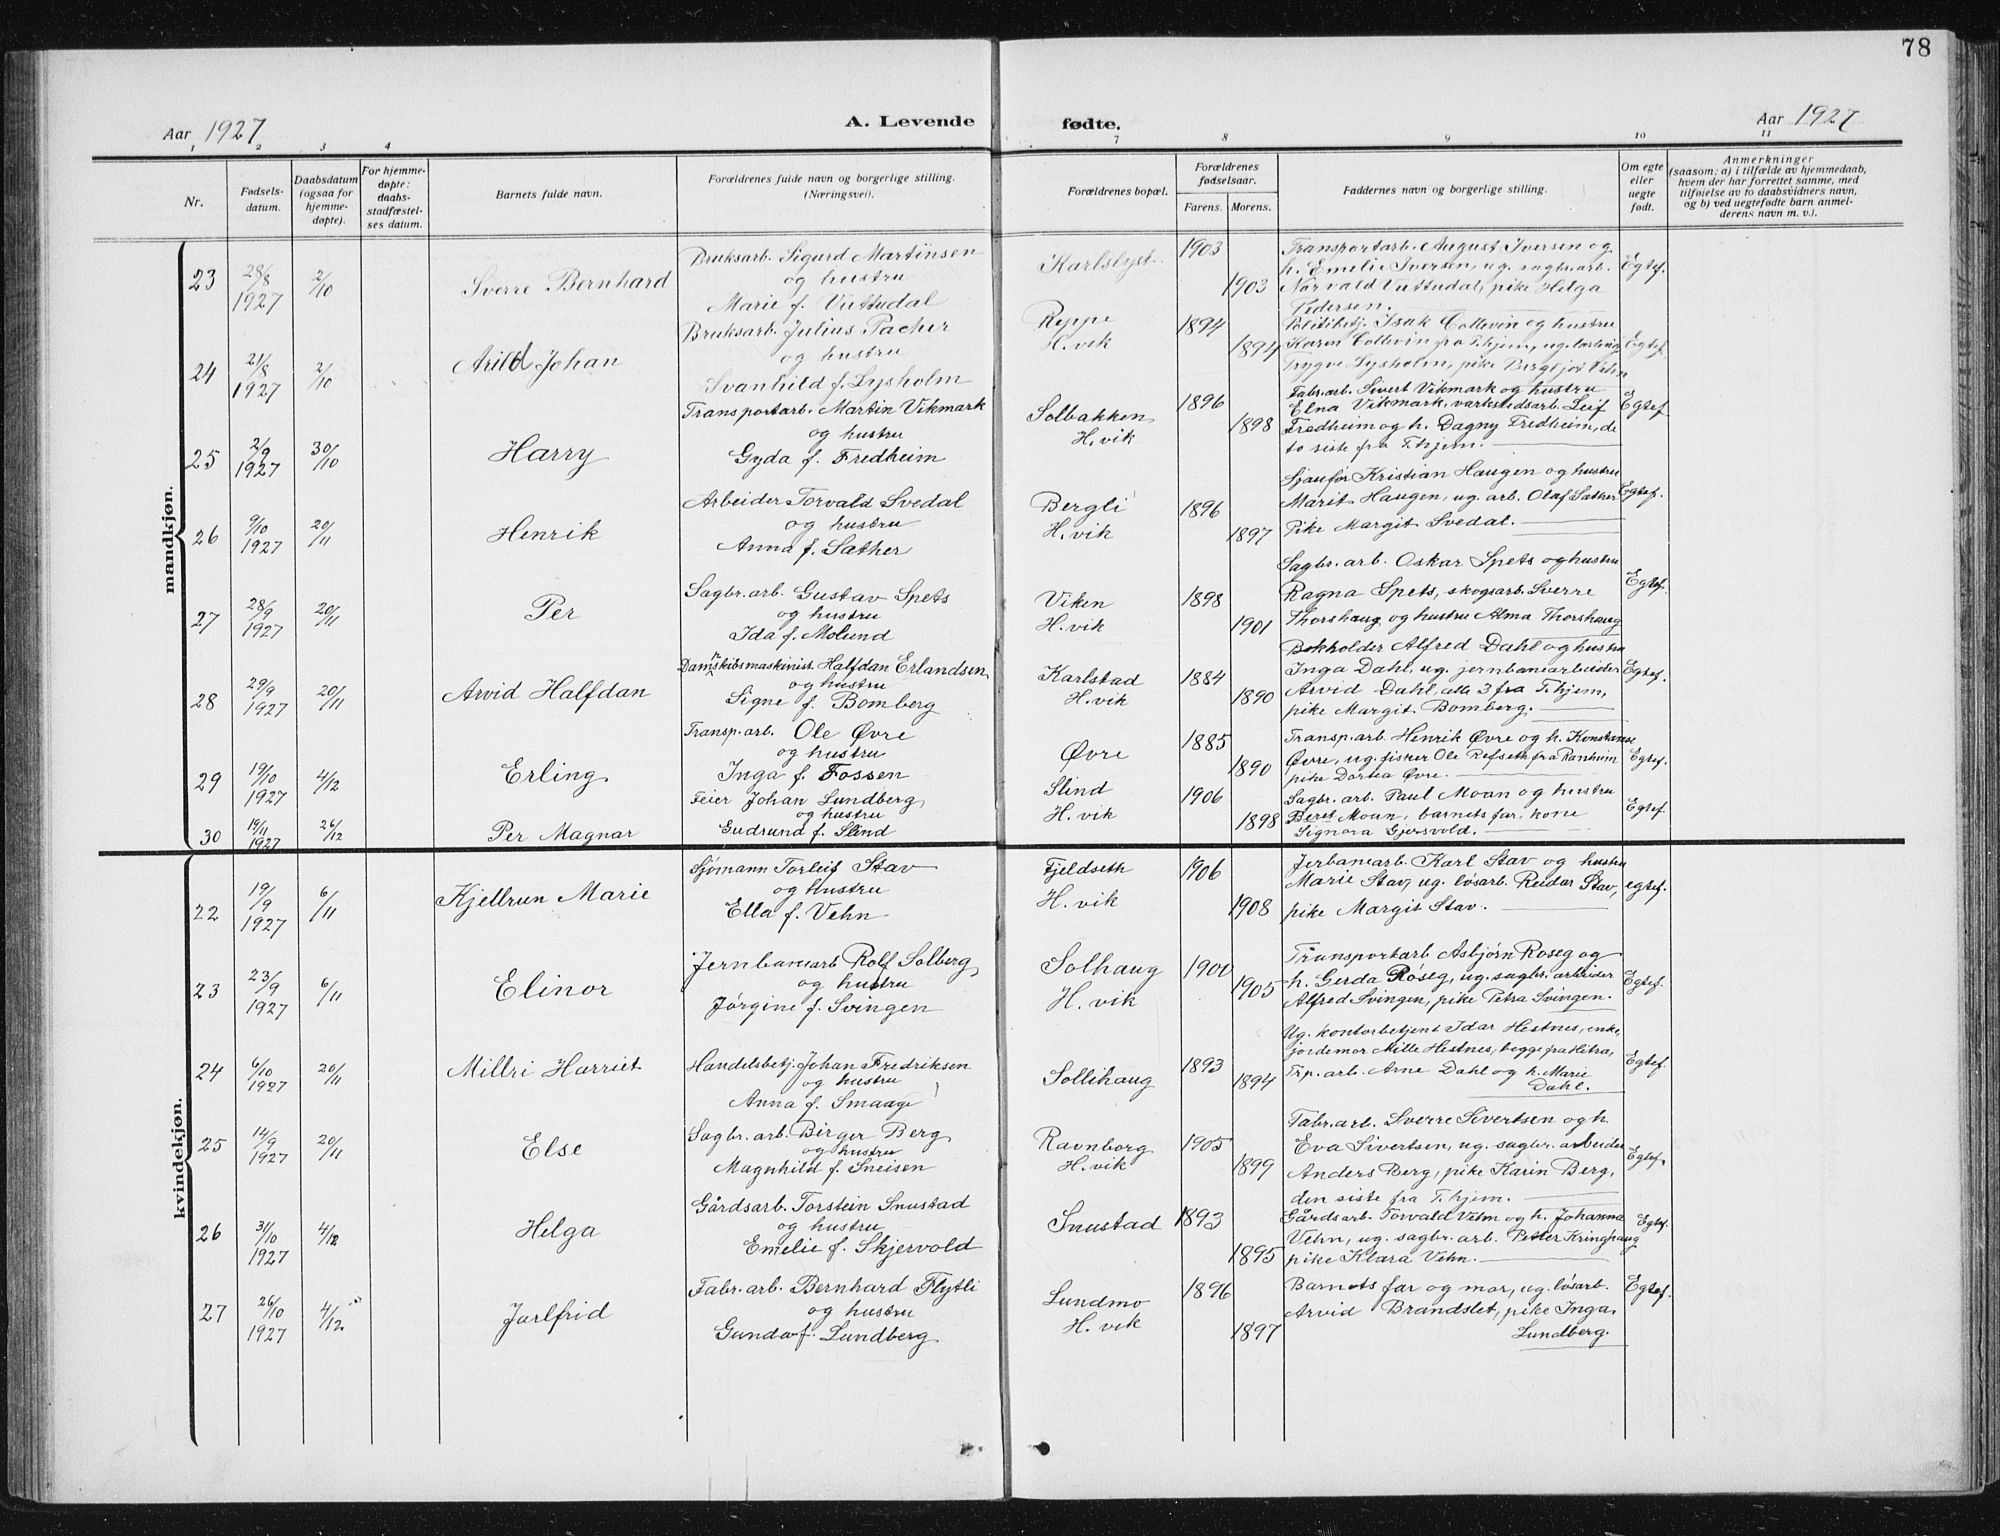 78
Aar 1927
A. Levende
fødte.
Aar 1927
1 2 3 4
7 8 9 10 11
Nr.
Fødsels-
datum.
Daabsdatum
(ogsaa for
hjemme-
døpte).
For hjemme-
døpte:
daabs-
stadfæstel-
ses datum.
Barnets fulde navn.
Forældrenes fulde navn og borgerlige stilling.
(Næringsvei).
Forældrenes bopæl.
Forældrenes
fødselsaar.
Farens. Morens.
Faddernes navn og borgerlige stilling.
Om egte
eller
uegte
født.
Anmerkninger
(saasom: a) i tilfælde av hjemmedaab,
hvem der har forrettet samme, med
tilføielse av to daabsvidners navn,
og b) ved uegtefødte barn anmel-
derens navn m. v.).
mandkjøn.
23
28/8
1927
2/10
Sverre Bernhard
Bruksarb. Sigurd Martinsen
og hustru
Marie f. Vuttudal
Karlslyst
1903
1903
Transportarb. August Iversen og
h. Emelie Iversen, ug. sagbr.arb.
Norvald Vuttudal, pike Helga
Pedersen.
Egtef.
24
21/8
1927
2/10
Arild Johan
Bruksarb. Julius Pacher
og hustru
Svanhild f. Lysholm
Reppe
H.vik
1894
1894
Politibetj. Isak Collevin og hustru
Karen Collevin fra T.hjem, ug.
Trygve Lysholm, pike Bergljot Vehn
Egtef.
25
2/9
1927
30/10
Harry
Transportarb. Martin Vikmark
og hustru
Gyda f. Fredheim
Solbakken
H.vik
1896
1898
Fabr.arb. Sivert Vikmark og hustru
Elna Vikmark, verkstedsarb. Leif
Fredheim og h. Dagny Fredheim, de
to siste fra T.hjem.
Egtef.
26
9/10
1927
20/11
Henrik
Arbeider Torvald Svedal
og hustru
Anna f. Sæther
Bergli
H.vik
1896
1897
Sjaufør Kristian Haugen og hustru
Marit Haugen, ug. arb. Olaf Sæther
Pike Margit Svedal.
Egtef.
27
28/9
1927
20/11
Per
Sagbr.arb. Gustav Spets
og hustru
Ida f. Molund
Viken
H.vik
1898
1901
Sagbr.arb. Oskar Spets og hustru
Ragna Spets, skogsarb. Sverre
Thorshaug og hustru Alma Thorshaug
Egtef.
28
29/9
1927
20/11
Arvid Halfdan
Dampskibsmaskinist Halfdan Erlandsen
og hustru
Signe f. Bomberg
Karlstad
H.vik
1884
1890
Bokholder Alfred Dahl og hustru
Inga Dahl, ug. jernbanearbeider
Arvid Dahl, alle 3 fra T.hjem,
pike Margit Bomberg.
Egtef.
29
19/10
1927
4/12
Erling
Transp.arb. Ole Øvre
og hustru
Inga f. Fossen
Øvre
1885
1890
Transp.arb. Henrik Øvre og h. Konstanse
Øvre, ug. fisker Ole Refseth fra Ranheim
pike Dortea Øvre.
Egtef.
30
19/11
1927
26/12
Per Magnar
Feier Johan Lundberg
og hustru
Gudrund f. Slind
Slind
H.vik
1906
1898
Sagbr.arb. Paul Moan og hustru
Beret Moan, barnets far, kone
Signora Gjersvold.
Egtef.
kvindekjøn.
22
19/9
1927
6/11
Kjellrun Marie
Sjømann Torleif Stav
og hustru
Ella f. Vehn
Fjeldseth
H.vik
1906
1908
Jerbanearb. Karl Stav og hustru
Marie Stav, ug. løsarb. Reidar Stav,
pike Margit Stav.
egtef.
23
23/9
1927
6/11
Elinor
Jernbanearb Rolf Solberg
og hustru
Jørgine f. Svingen
Solhaug
H.vik
1900
1905
Transportarb Asbjørn Roseg og
h. Gerda Røseg, ug. sagbr. arbeider
Alfred Svingen, pike Petra Svingen.
Egtef.
24
6/10
1927
20/11
Millri Harriet
Handelsbetj. Johan Fredriksen
og hustru
Anna f. Smaage
Sollihaug
1893
1894
Ug. kontorbetjent Idar Hestnes, enke,
jordemor Mille Hestnes, begge fra Hitra,
Trp. arb. Arne Dahl og h. Marie
Dahl.
Egtef.
25
14/9
1927
20/11
Else
Sagbr.arb. Birger Berg
og hustru
Magnhild f. Sneisen
Ravnborg
H.vik
1905
1899
Fabr.arb. Sverre Sivertsen og h.
Eva Sivertsen, ug. sagbr. arbeider
Anders Berg, pike Karin Berg,
den siste fra T.hjem.
Egtef.
26
31/10
1927
4/12
Helga
Gårdsarb. Torstein Snustad
og hustru
Emelie f. Skjervold
Snustad
1893
1895
Gårdsarb. Torvald Vehn og h. Johanna
Vehn, ug. sagbr. arb. Petter Kringhaug
pike Klara Vehn.
Egtef.
27
26/10
1927
4/12
Jarlfrid
Fabr.arb. Bernhard Flytli
og hustru
Gunda f. Lundberg
Lundmo
H.vik
1896
1897
Barnets far og mor, ug. løsarb.
Arvid Brandslet, pike Inga
Lundberg.
Egtef.